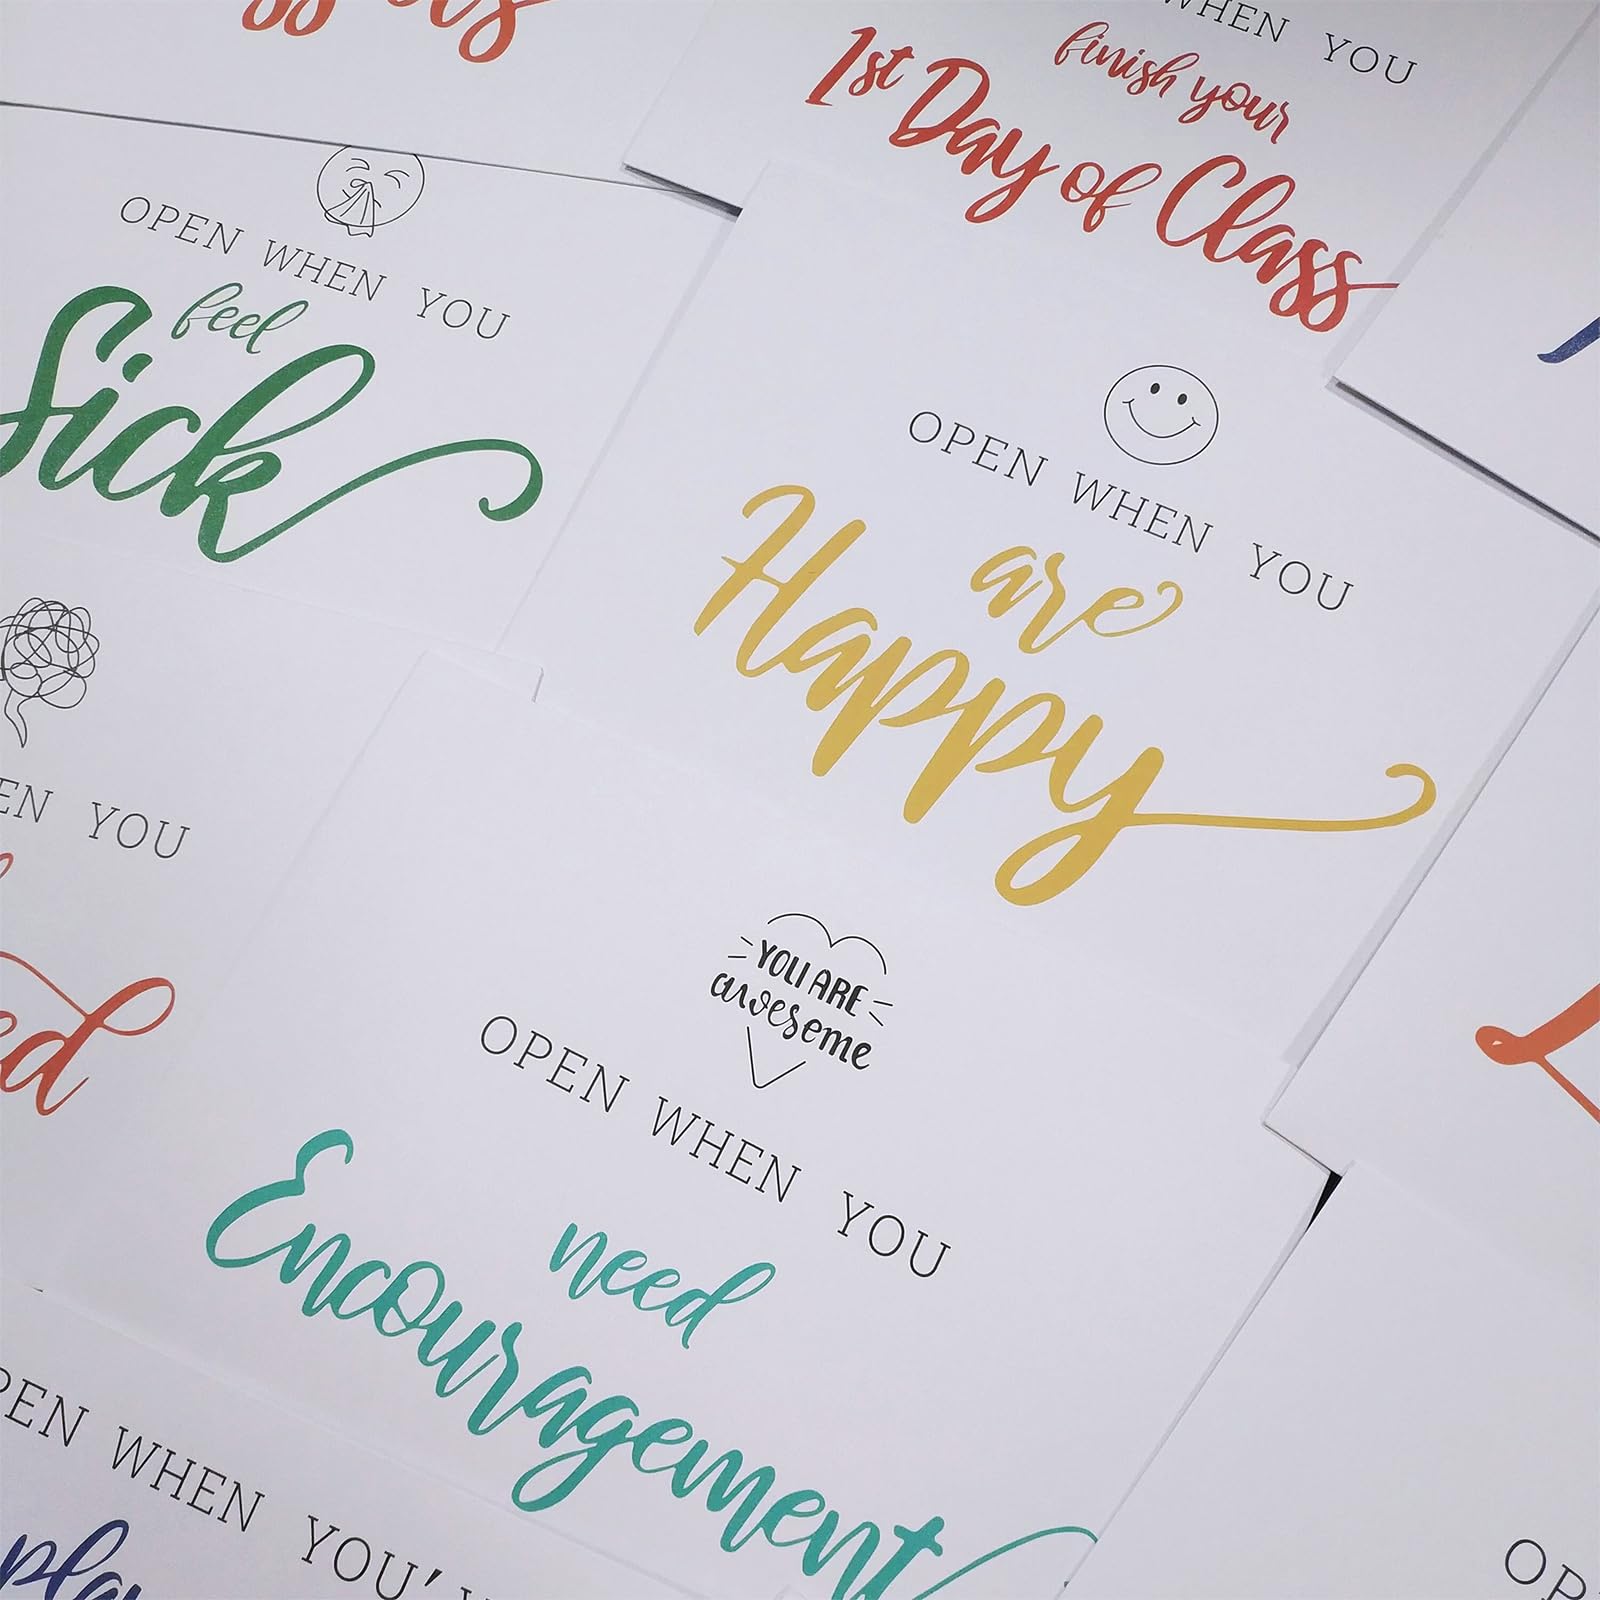 WHEN YOU
finish your
1st Day of Class
OPEN WHEN YOU
feel
Sick
OPEN WHEN YOU
are
Happy
YOU
YOU ARE
awesome
OPEN WHEN YOU
need
Encouragement
WHEN YOU'